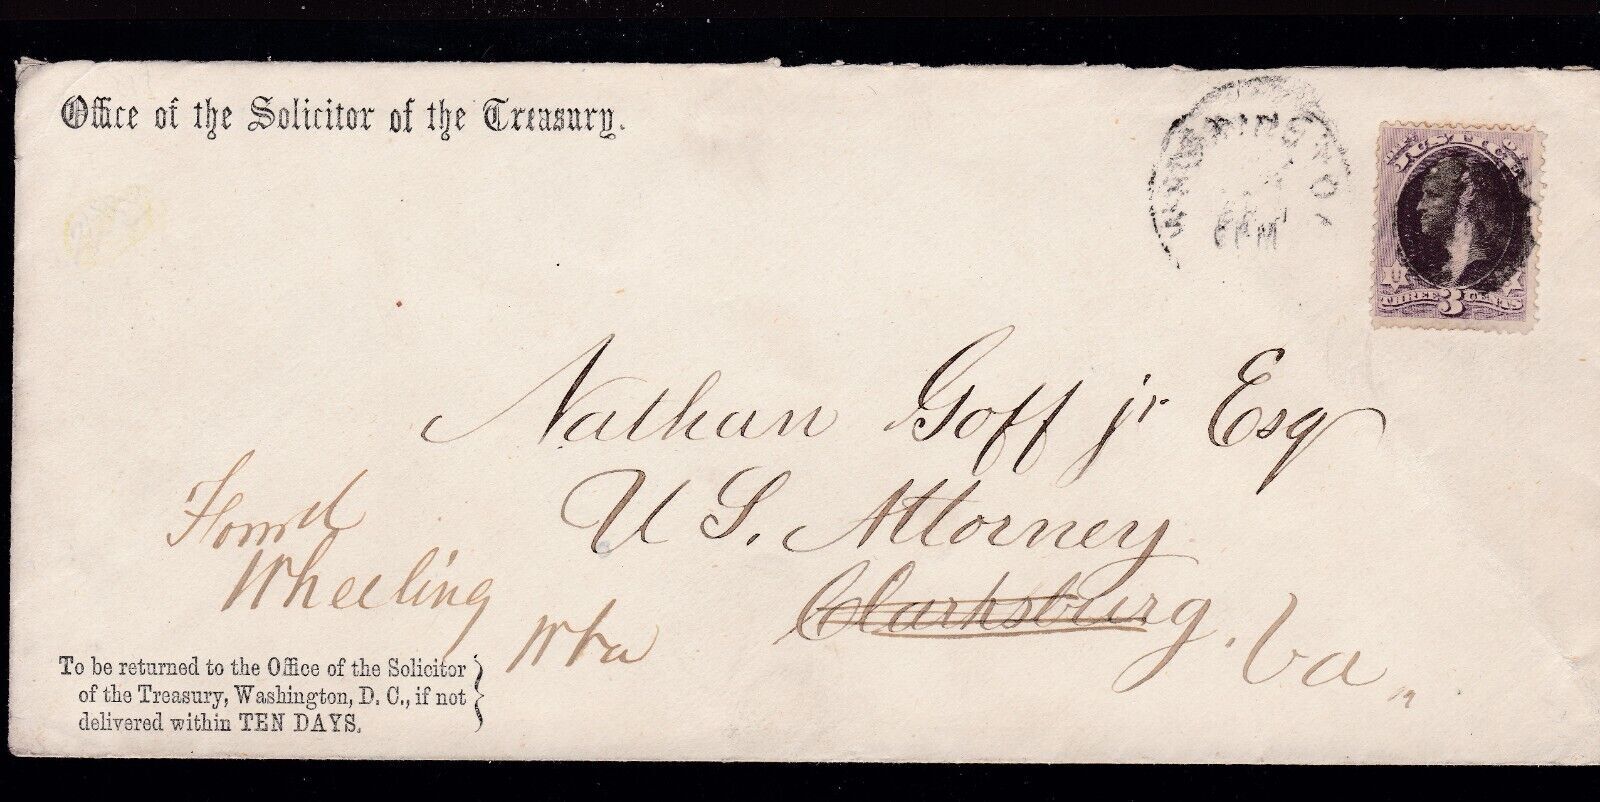 Office of the Solicitor of the Treasury.
WASHINGTO
6 PM
JUSTICE
U S
THREE 3 CENTS
Nathan Goff jr Esq
U S. Attorney
Clarksburg. Va
Forwd
Wheeling
W Va
To be returned to the Office of the Solicitor
of the Treasury, Washington, D. C., if not
delivered within TEN DAYS.